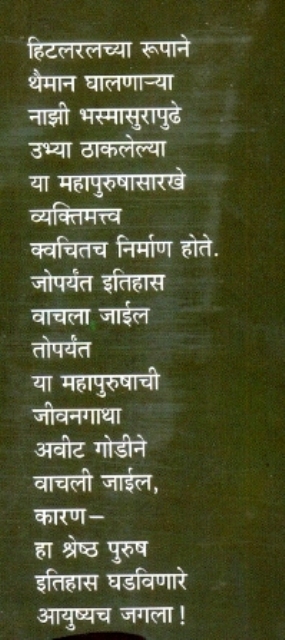 हिटलरलच्या रूपाने
थैमान घालणाऱ्या
नाझी भस्मासुरापुढे
उभ्या ठाकलेल्या
या महापुरुषासारखे
व्यक्तिमत्त्व
क्वचितच निर्माण होते.
जोपर्यंत इतिहास
वाचला जाईल
तोपर्यंत
या महापुरुषाची
जीवनगाथा
अवीट गोडीने
वाचली जाईल,
कारण–
हा श्रेष्ठ पुरुष
इतिहास घडविणारे
आयुष्यच जगला !